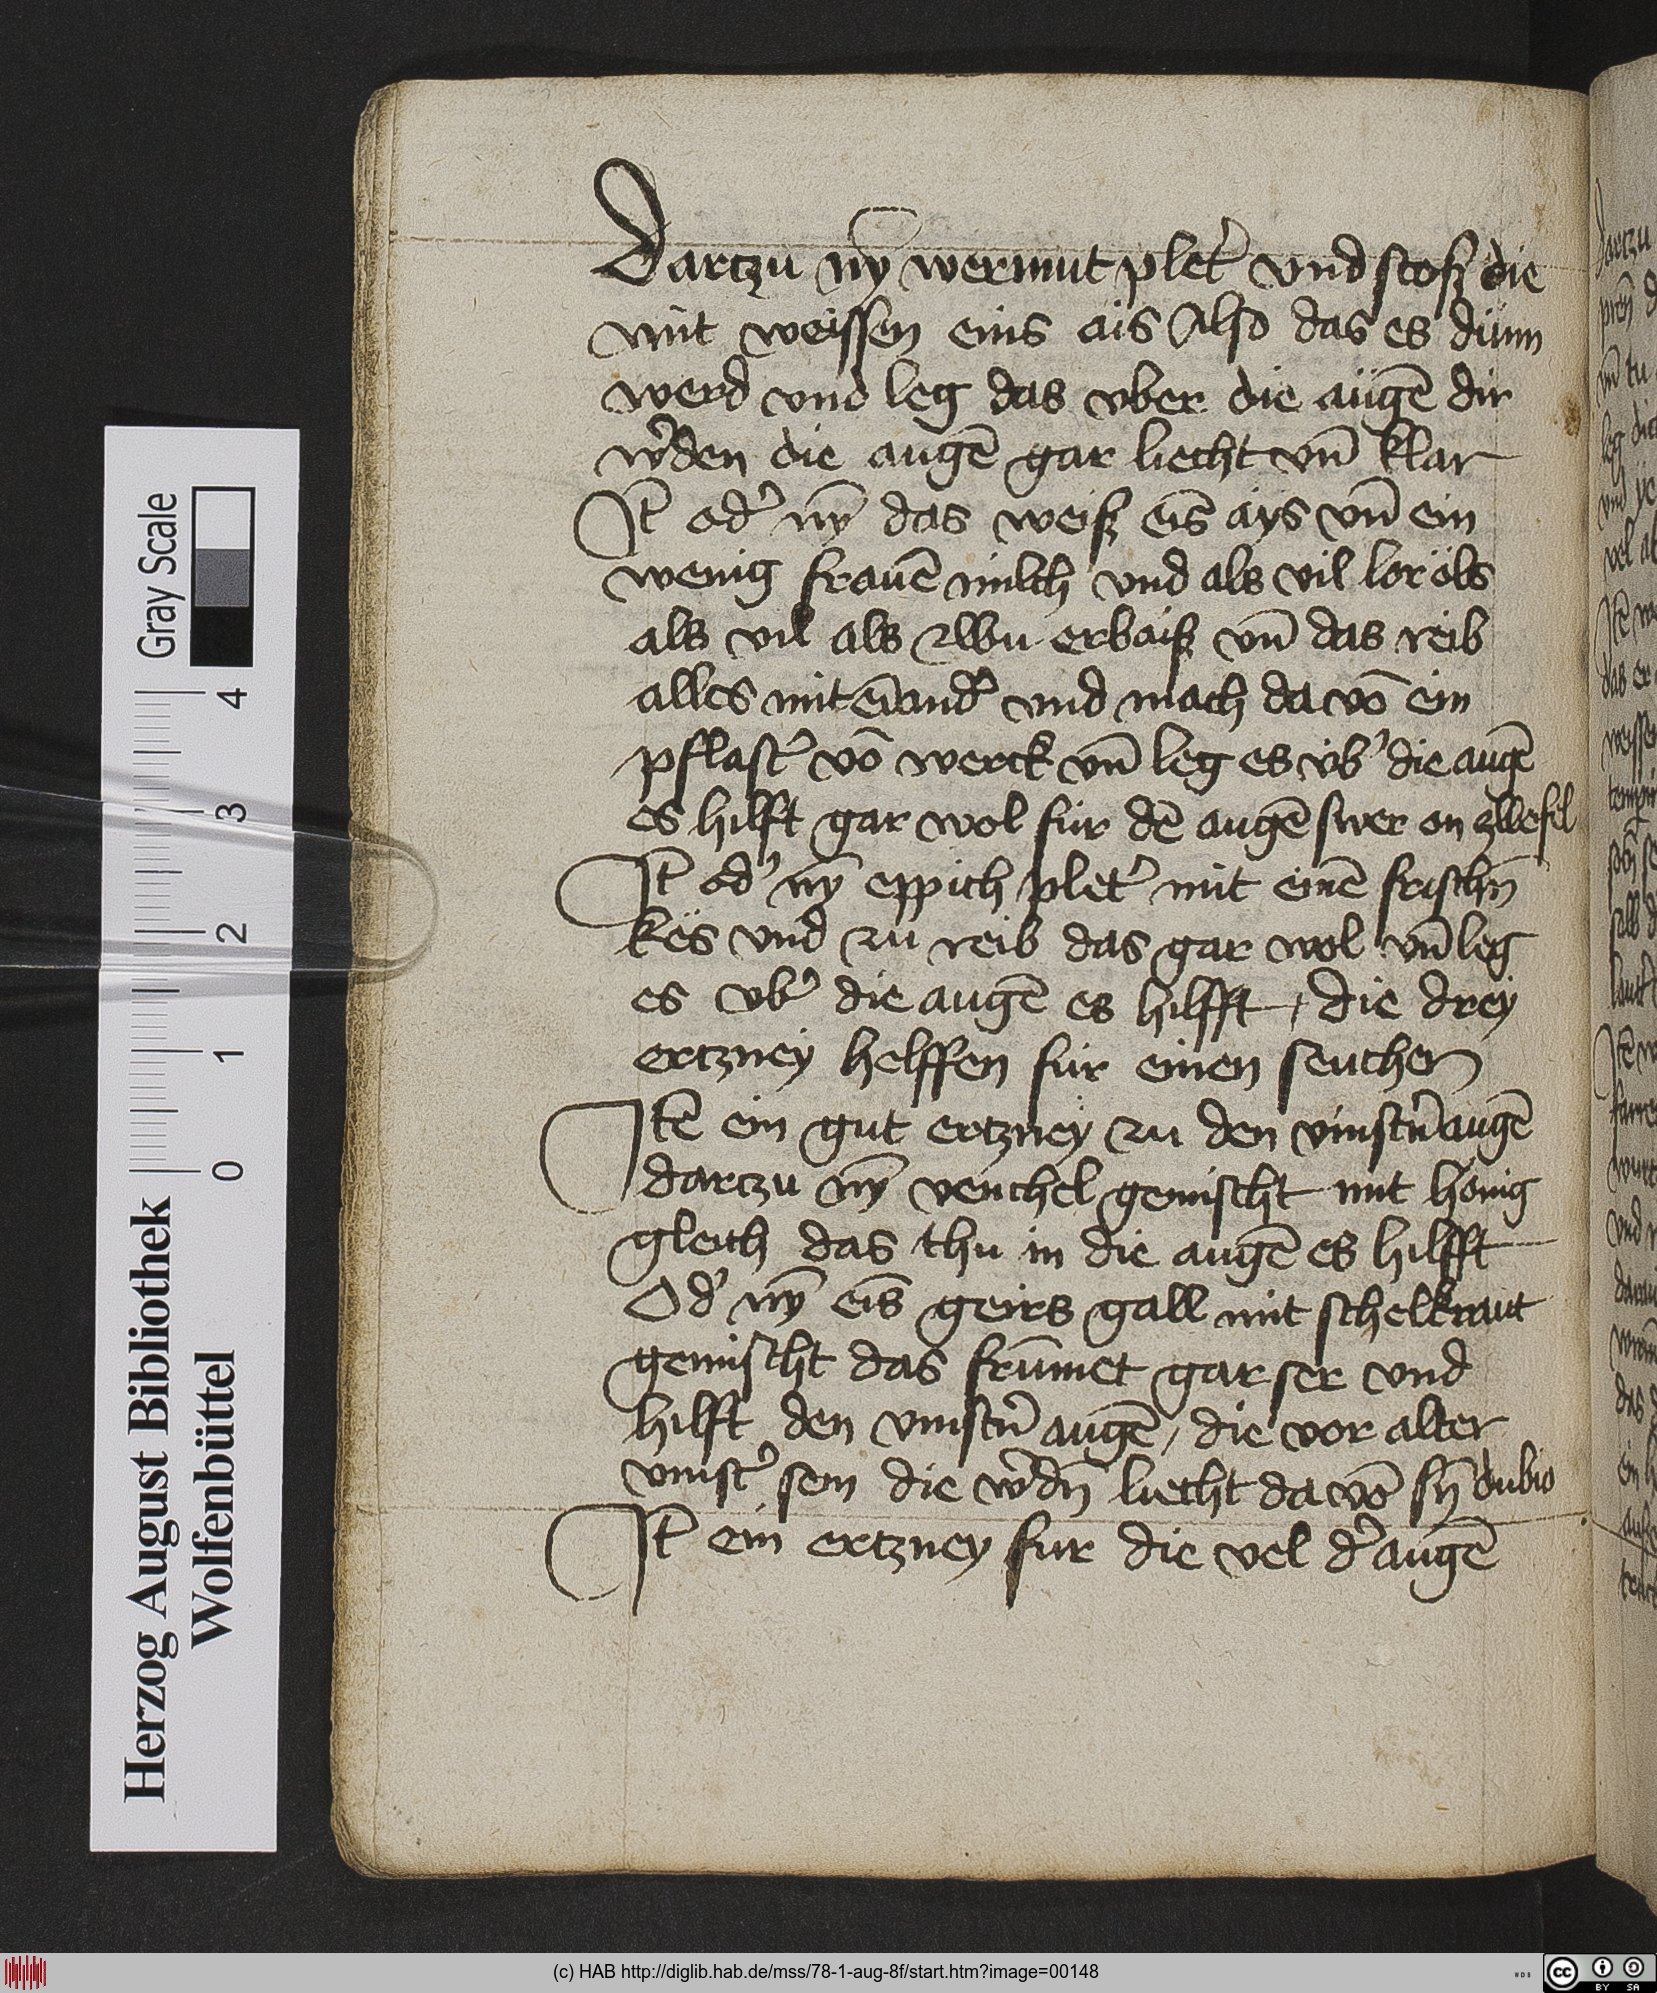 Dartzu nȳ wermut plet᷑ vnd stoß die
mit weissen eins ais Also das es dünn
werd vnd leg das vber die augē dir
w᷑den die augē gar liecht vn̄ klar
Jt̄ od᷑ nȳ das weiß eīs ays vn̄ ein
wenig frauē milch vnd als vil loröls
als vil als zwu erbaiß vn̄ das reib
alles mit eīand᷑ vnd mach da vō ein
pflast᷑ vō werck vn̄ leg es üb᷑ die augē
es hilfft gar wol für dē augē swer on zwefil
Jt̄ od᷑ nȳ eppich plet᷑ mit einē frischn̄
kës vnd zu reib das gar wol vn̄ leg
es vb᷑ die augē es hilfft / die drey
ertzney helffen für einen seuchen
Jtē ein gut ertzney zu den vinst᷑n augē
dartzu nȳ venchel gemischt mit honig
gleich das thu in die augē es hilfft
Od᷑ nȳ eīs geirs gall mit schelkraut
gemischt das frūmet gar ser vnd
hilft den vinst᷑n augē / die vor alter
vinst᷑ sein die w᷑dn̄ liecht da vō sn̄ dubio
Jt̄ ein ertzney fur die vel d᷑ augē
Herzog August Bibliothek
Wolfenbüttel
0 1 2 3 4
Gray Scale
(c) HAB http://diglib.hab.de/mss/78-1-aug-8f/start.htm?image=00148
WDB
cc BY SA